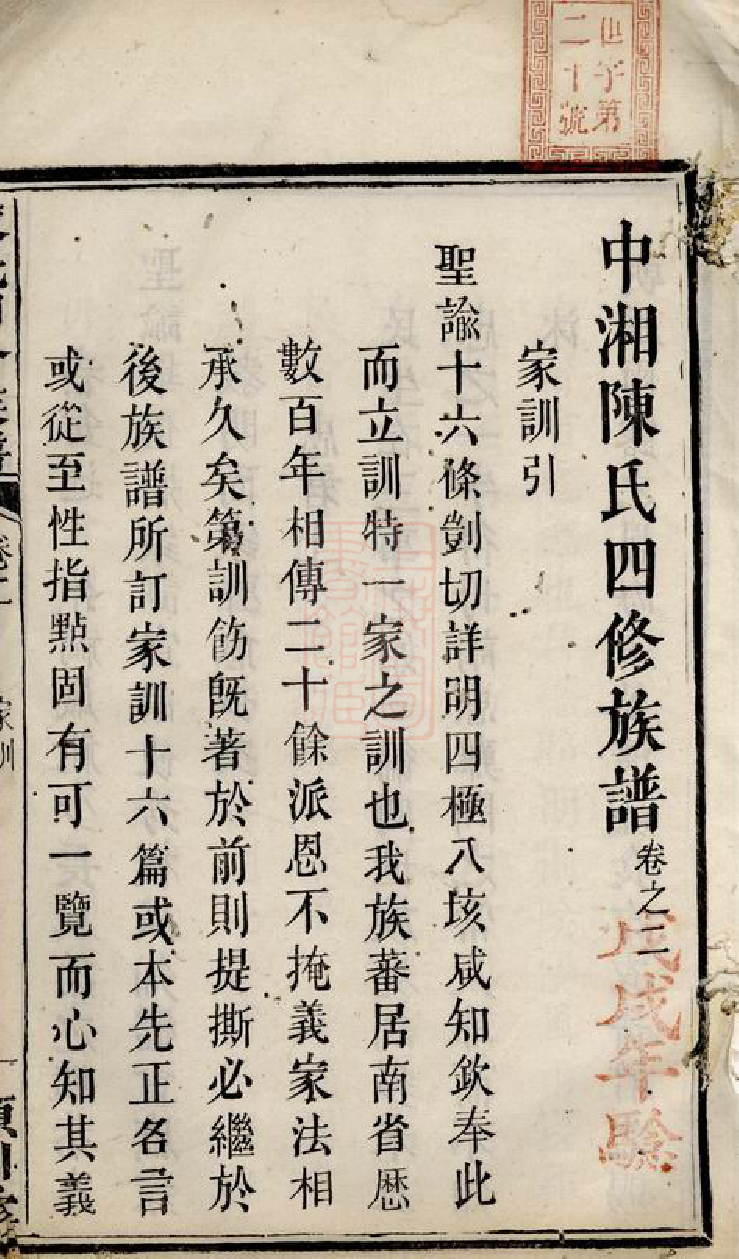 世字第
二十號
中湘陳氏四修族譜卷之二
戊戌年驗
家訓引
聖諭十六條剴切詳明四極八垓咸知欽奉此
而立訓特一家之訓也我族蕃居南省歷
數百年相傳二十餘派恩不掩義家法相
承久矣第訓飭旣著於前則提撕必繼於
後族譜所訂家訓十六篇或本先正各言
或從至性指點固有可一覽而心知其義
家訓